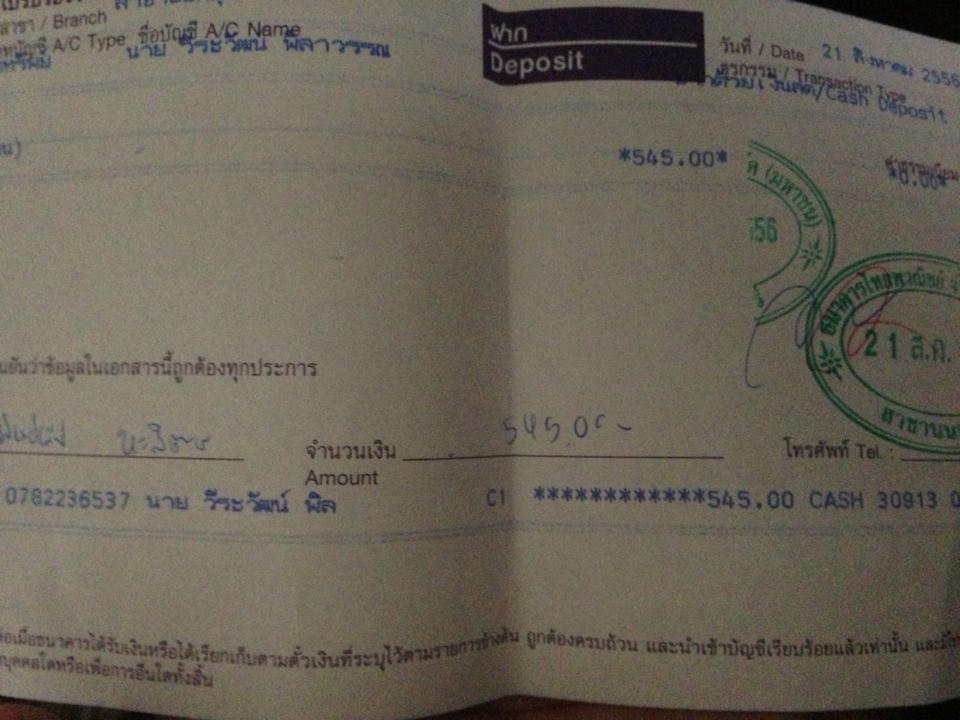 สาขา / Branch
A/C Type ชื่อบัญชี A/C Name
นาย วีระวัฒน์ พิลาวรรณ
ฝาก
Deposit
วันที่ / Date 21 สิงหาคม 2556
ธุรกรรม / Transaction Type
เงินสด/Cash Deposit
*545.00*
ค่าธรรมเนียม
*0.00*
(มหาชน)
56
ธนาคารไทยพาณิชย์
21 ส.ค.
ยืนยันว่าข้อมูลในเอกสารนี้ถูกต้องทุกประการ
จำนวนเงิน 545.00 -
Amount
โทรศัพท์ Tel. :
0782236537 นาย วีระวัฒน์ พิล C1 ************545.00 CASH 30913 0
ต่อเมื่อธนาคารได้รับเงินหรือได้เรียกเก็บตามตั๋วเงินที่ระบุไว้ตามรายการข้างต้น ถูกต้องครบถ้วน และนำเข้าบัญชีเรียบร้อยแล้วเท่านั้น
บุคคลใดหรือเพื่อการอื่นใดทั้งสิ้น